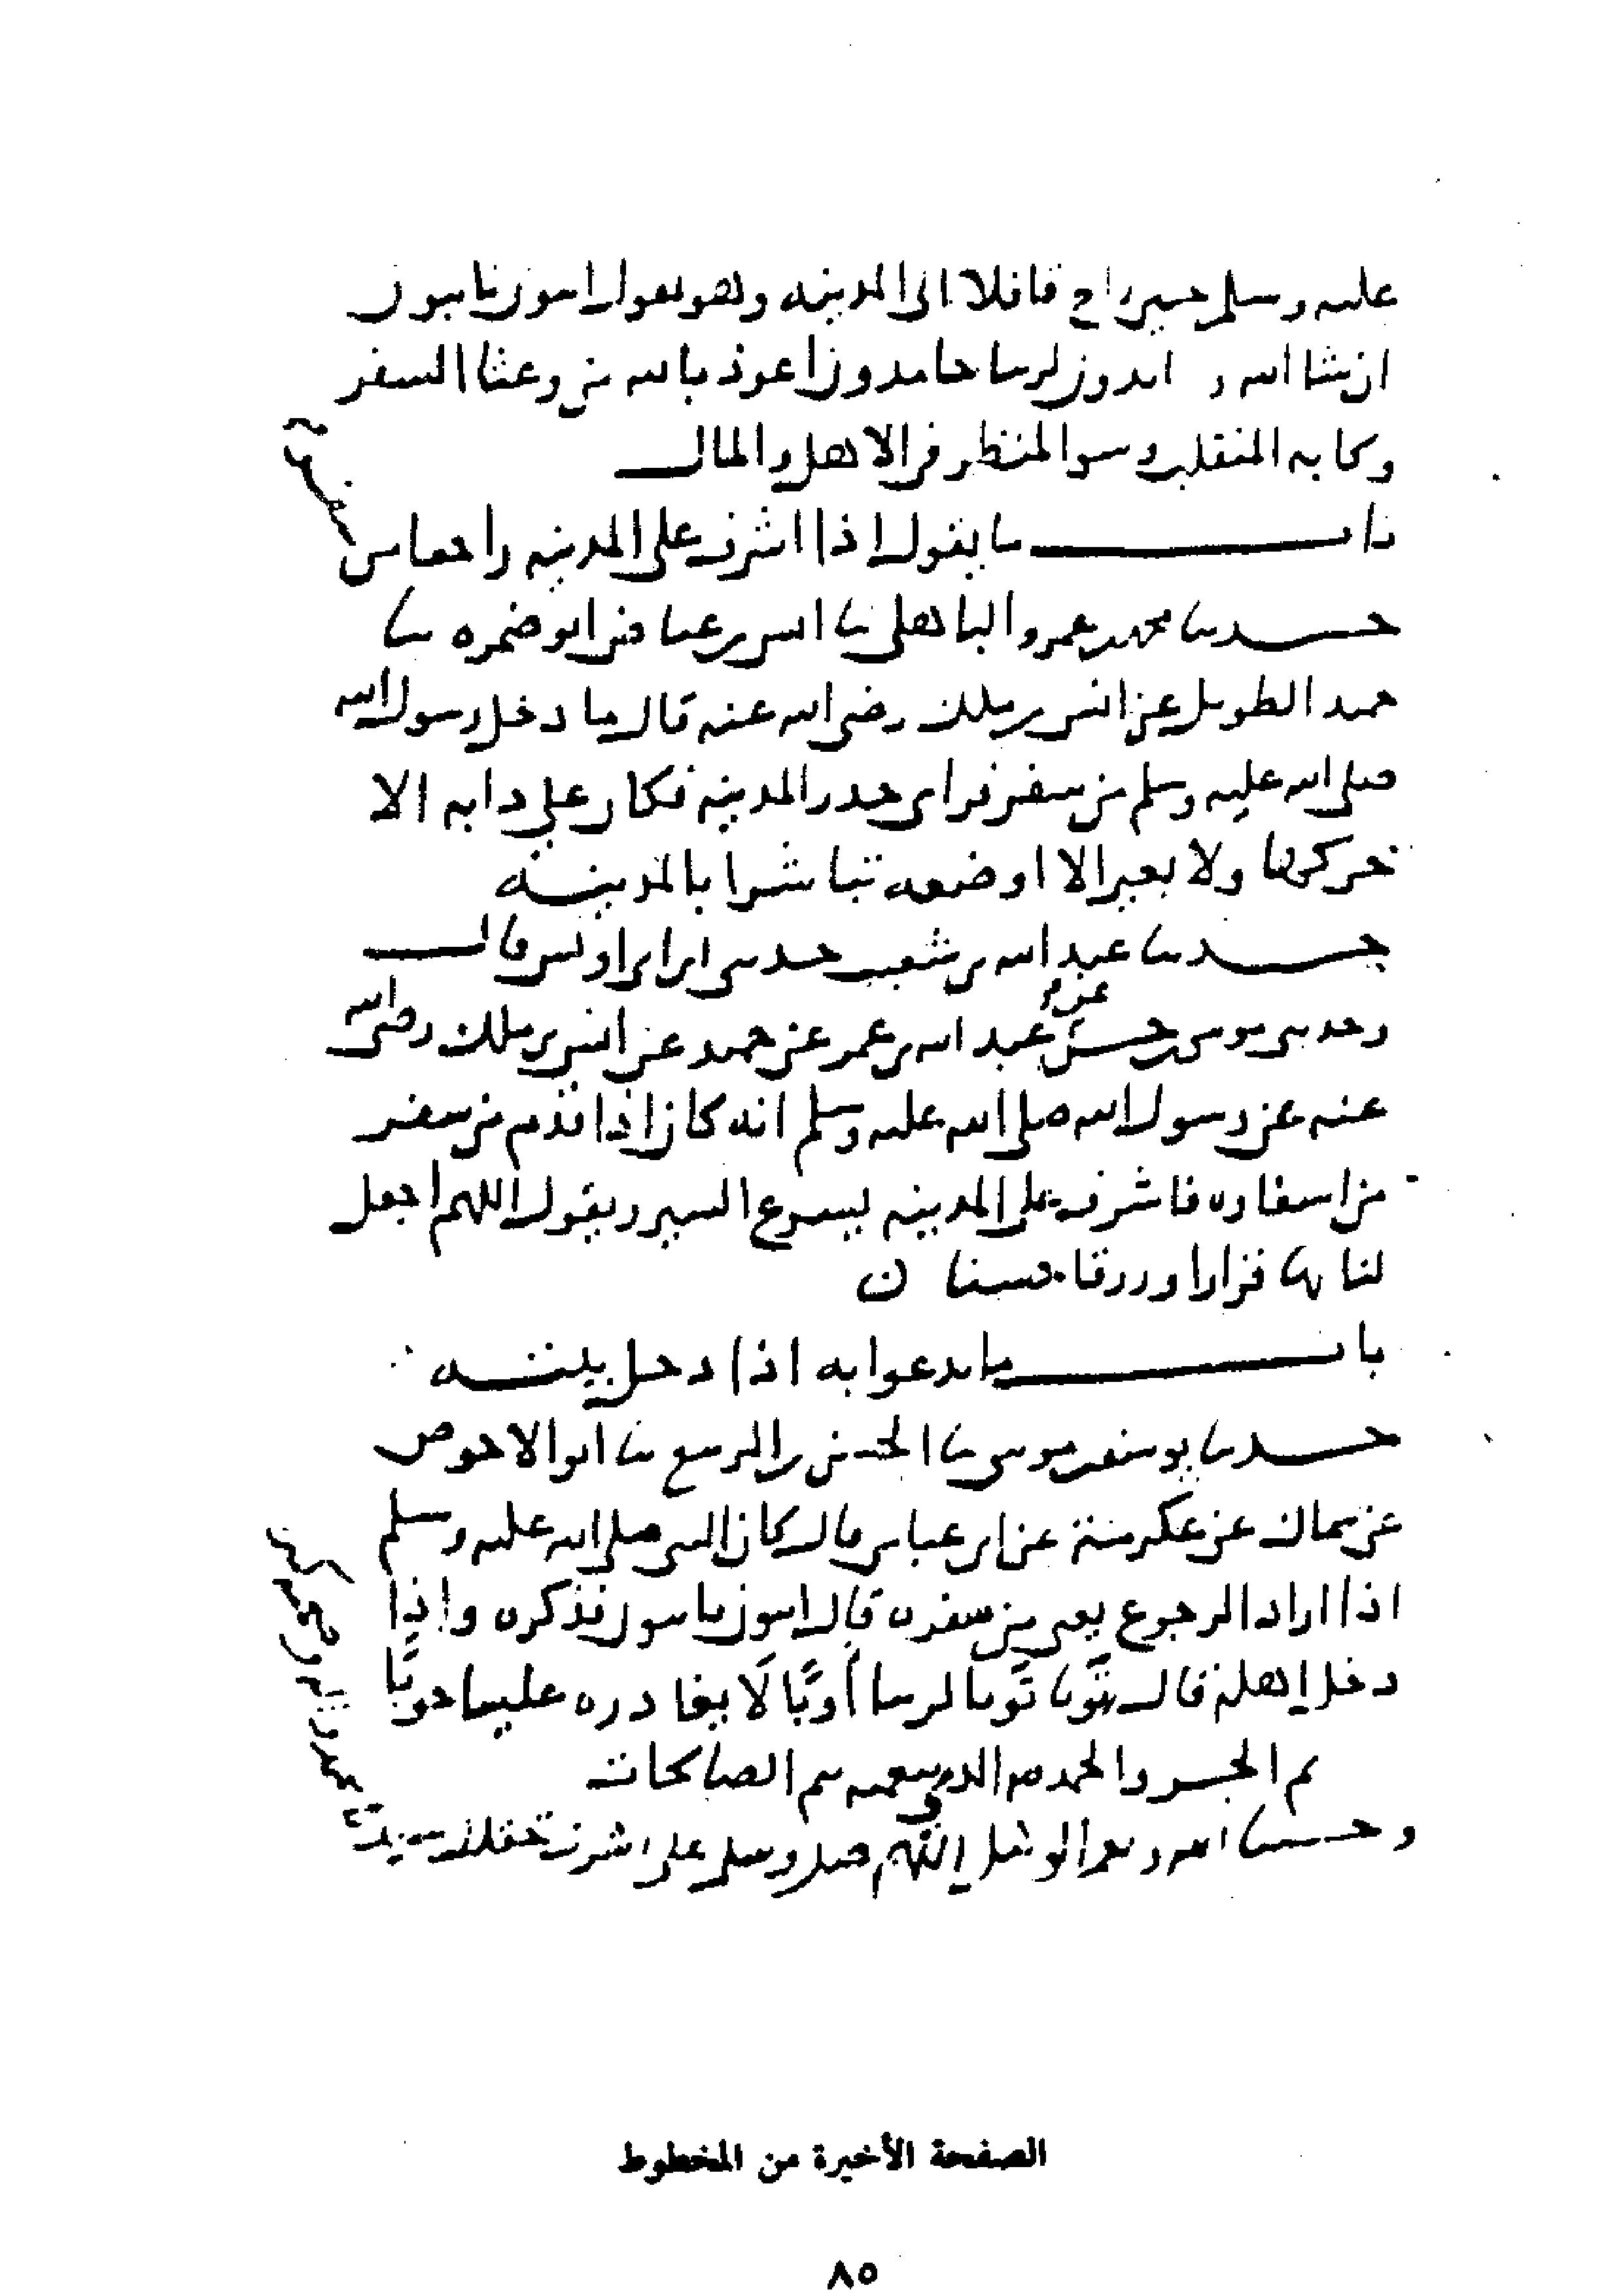 عليه وسلم حين راح قافلا الى المدينه وهو يقول ايبون تايبون
ان شا الله و ابدون لربنا حامدون اعوذ بالله من وعثا السفر
وكابه المنقلب وسوا المنظر في الاهل والمال
باب ما يقول اذا اشرف على المدينه راجعا من سفره
حدثنا محمد بن عمرو الباهلي ثنا انس بن عياض ابو ضمره ثنا
حميد الطويل عن انس بن ملك رضي الله عنه قال ما دخل رسول الله
صلى الله عليه وسلم من سفر فراى جدر المدينه فكان على دابه الا
حركها ولا بعير الا اوضعه تباشرا بالمدينه
حدثنا عبد الله بن شبيب حدثني ابن ابي اويس قال
وحدثني موسى بن حسن عن عبد الله بن عمر عن حميد عن انس بن ملك رضي الله
عنه عن رسول الله صلى الله عليه وسلم انه كان اذا قدم من سفر
من اسفاره فاشرف على المدينه يسرع السير ويقول اللهم اجعل
لنا بها قرارا ورزقا حسنا ن
باب ما يدعوا به اذا دخل بيته
حدثنا يوسف بن موسى ثنا الحسن بن الربيع ثنا ابو الاحوص
عن سماك عن عكرمة عن ابن عباس قال كان النبي صلى الله عليه وسلم
اذا اراد الرجوع يعني من سفره قال ايبون تايبون فذكره واذا
دخل الى اهله قال توبا توبا لربنا أوبًا لا يغادره علينا حوبًا
تم الجزء والحمد لله الذي بنعمته تتم الصالحات
وحسبنا الله ونعم الوكيل اللهم صل وسلم على اشرف خلقك سيدنا
محمد واله وصحبه
الصفحة الأخيرة من المخطوط
٨٥